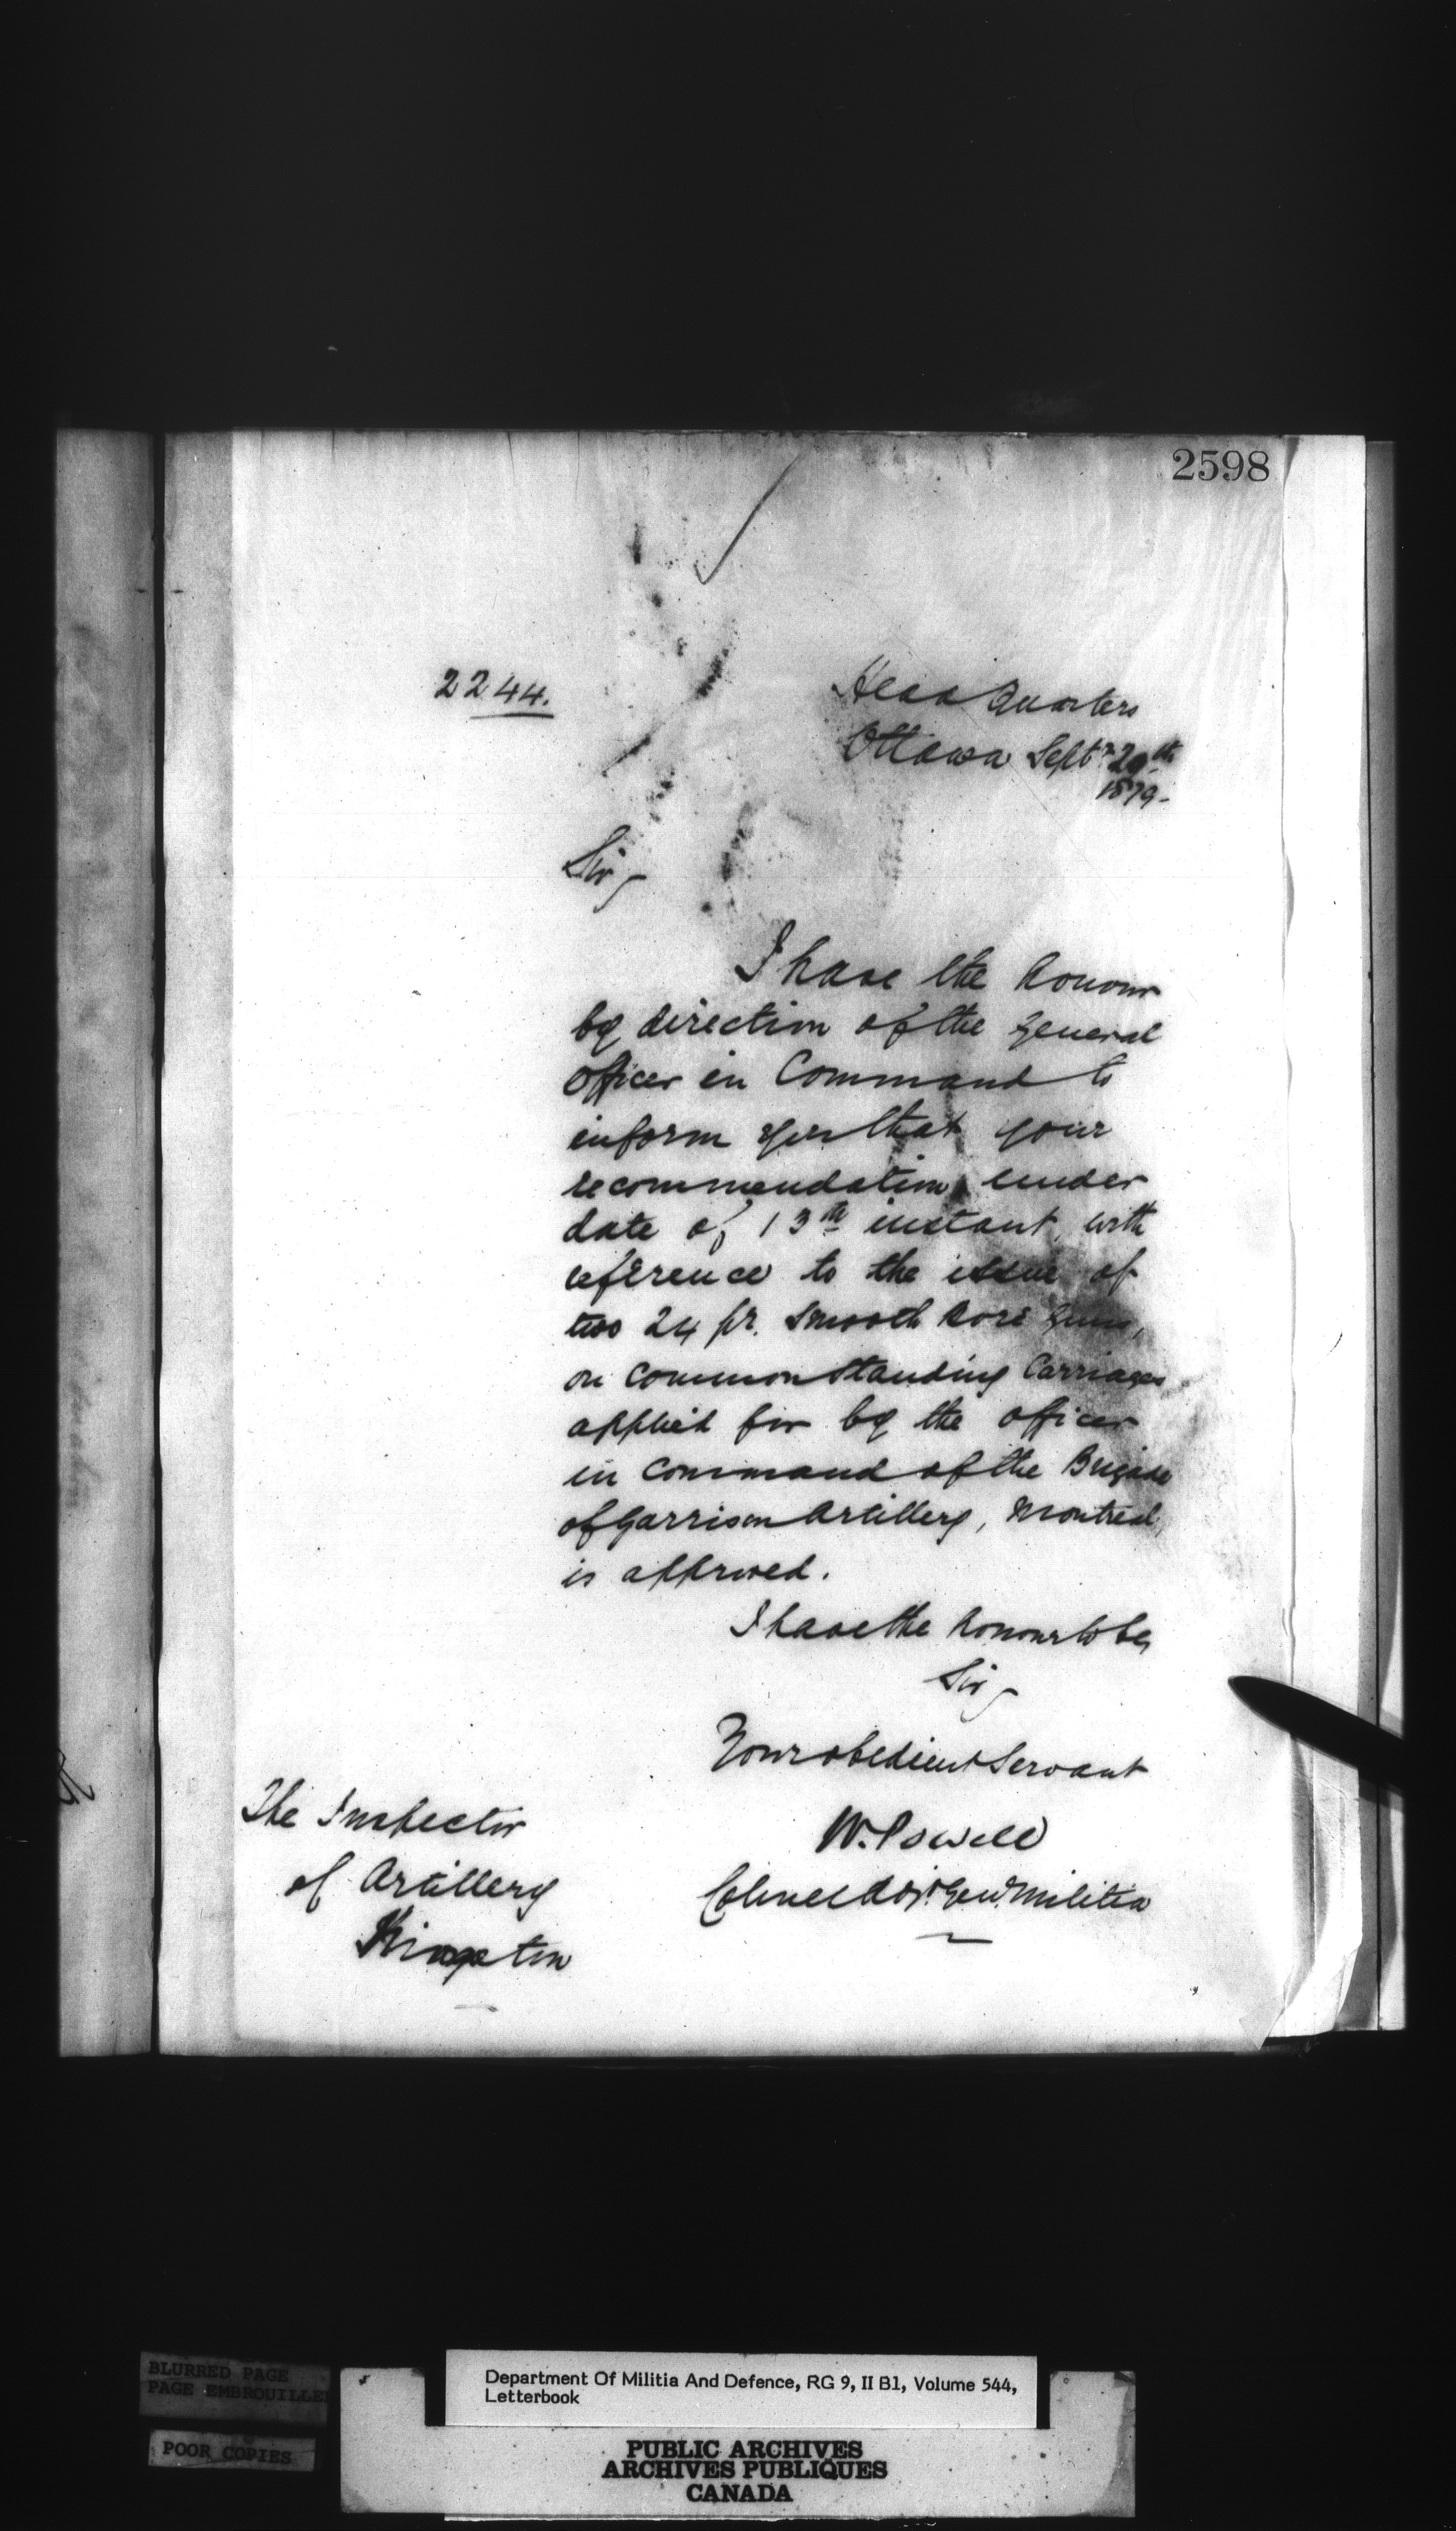 2598
2244.
Head Quarters
Ottawa Septr 29th
1879.
Sir,
I have the honour
by direction of the General
Officer in Command to
inform you that your
recommendation under
date of 13th instant, with
reference to the issue of
two 24 pr. Smooth bore guns,
on Common Standing Carriages
applied for by the officer
in Command of the Brigade
of Garrison Artillery, Montreal,
is approved.
I have the honour to be,
Sir,
Your obedient Servant
W. Powell
Colonel Adjt. Genl. Militia
The Inspector
of Artillery
Kingston
BLURRED PAGE
PAGE EMBROUILLEE
POOR COPIES
Department Of Militia And Defence, RG 9, II B1, Volume 544,
Letterbook
PUBLIC ARCHIVES
ARCHIVES PUBLIQUES
CANADA